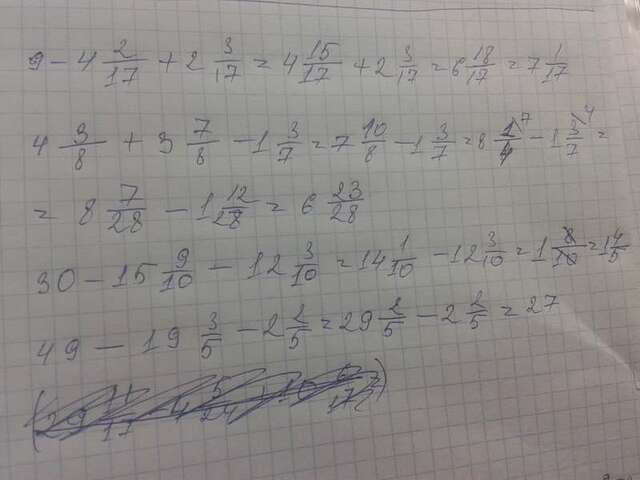 9 - 4 2/17 + 2 3/17 = 4 15/17 + 2 3/17 = 6 18/17 = 7 1/17
4 3/8 + 3 7/8 - 1 3/7 = 7 10/8 - 1 3/7 = 8 1/4 \7 - 1 3/7 \4 =
= 8 7/28 - 1 12/28 = 6 23/28
30 - 15 9/10 - 12 3/10 = 14 1/10 - 12 3/10 = 1 8/10 = 1 4/5
49 - 19 3/5 - 2 2/5 = 29 2/5 - 2 2/5 = 27